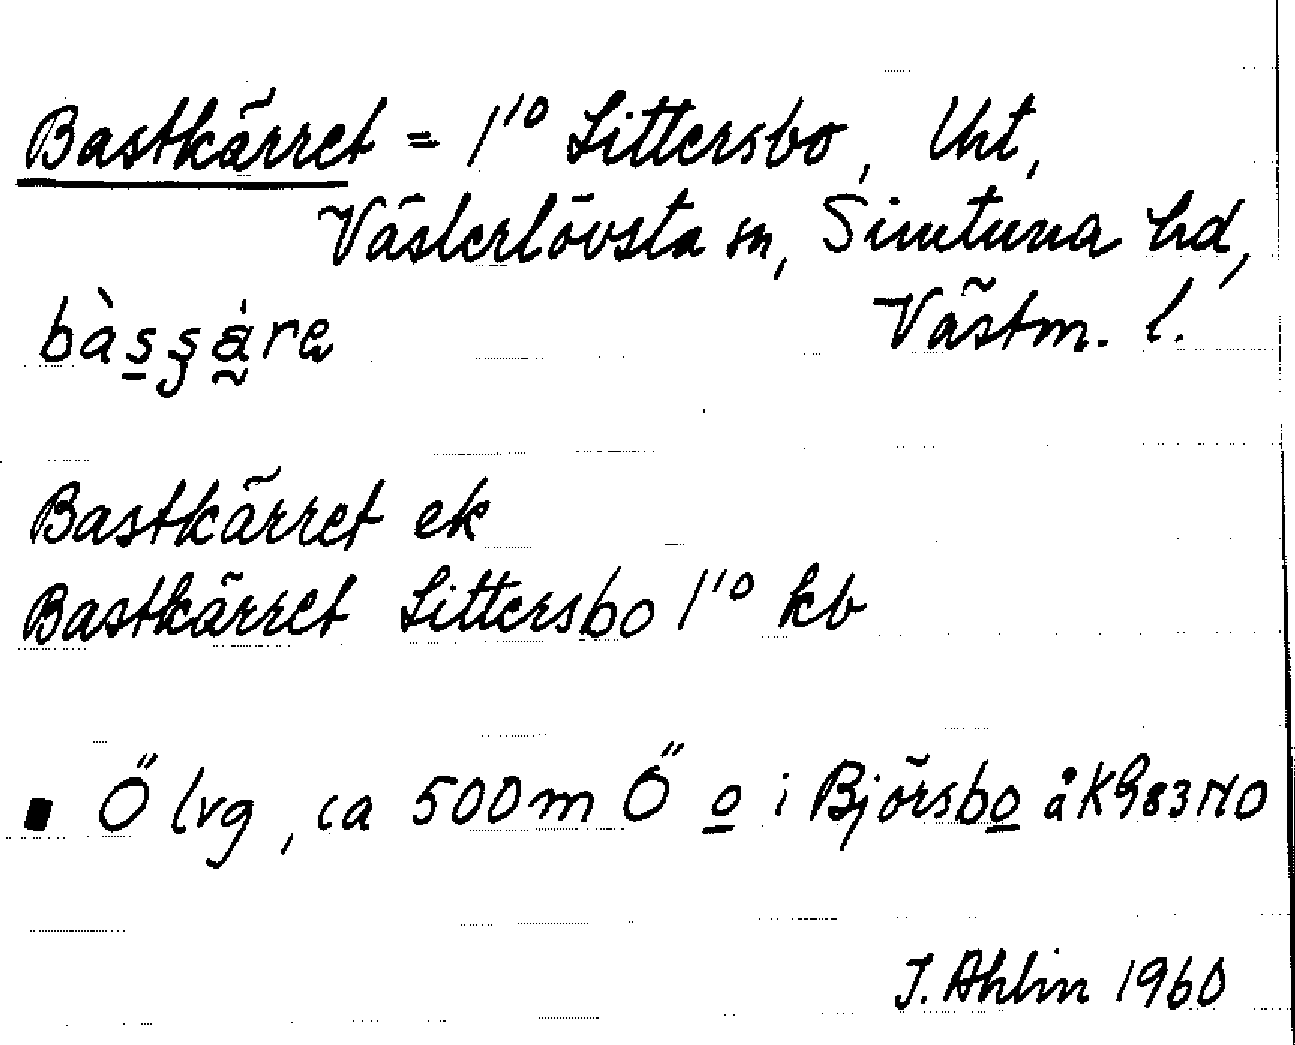 Bastkärret = 1¹⁰ Sittersbo, lht,
Västerlövsta sn, Simtuna hd,
bàs̲ʂàre Västm. l.
Bastkärret ek
Bastkärret Sittersbo 1¹⁰ kb
▪ Ö lvg, ca 500 m Ö o̲ i Björsbo̲ å K983NO
J. Ahlin 1960